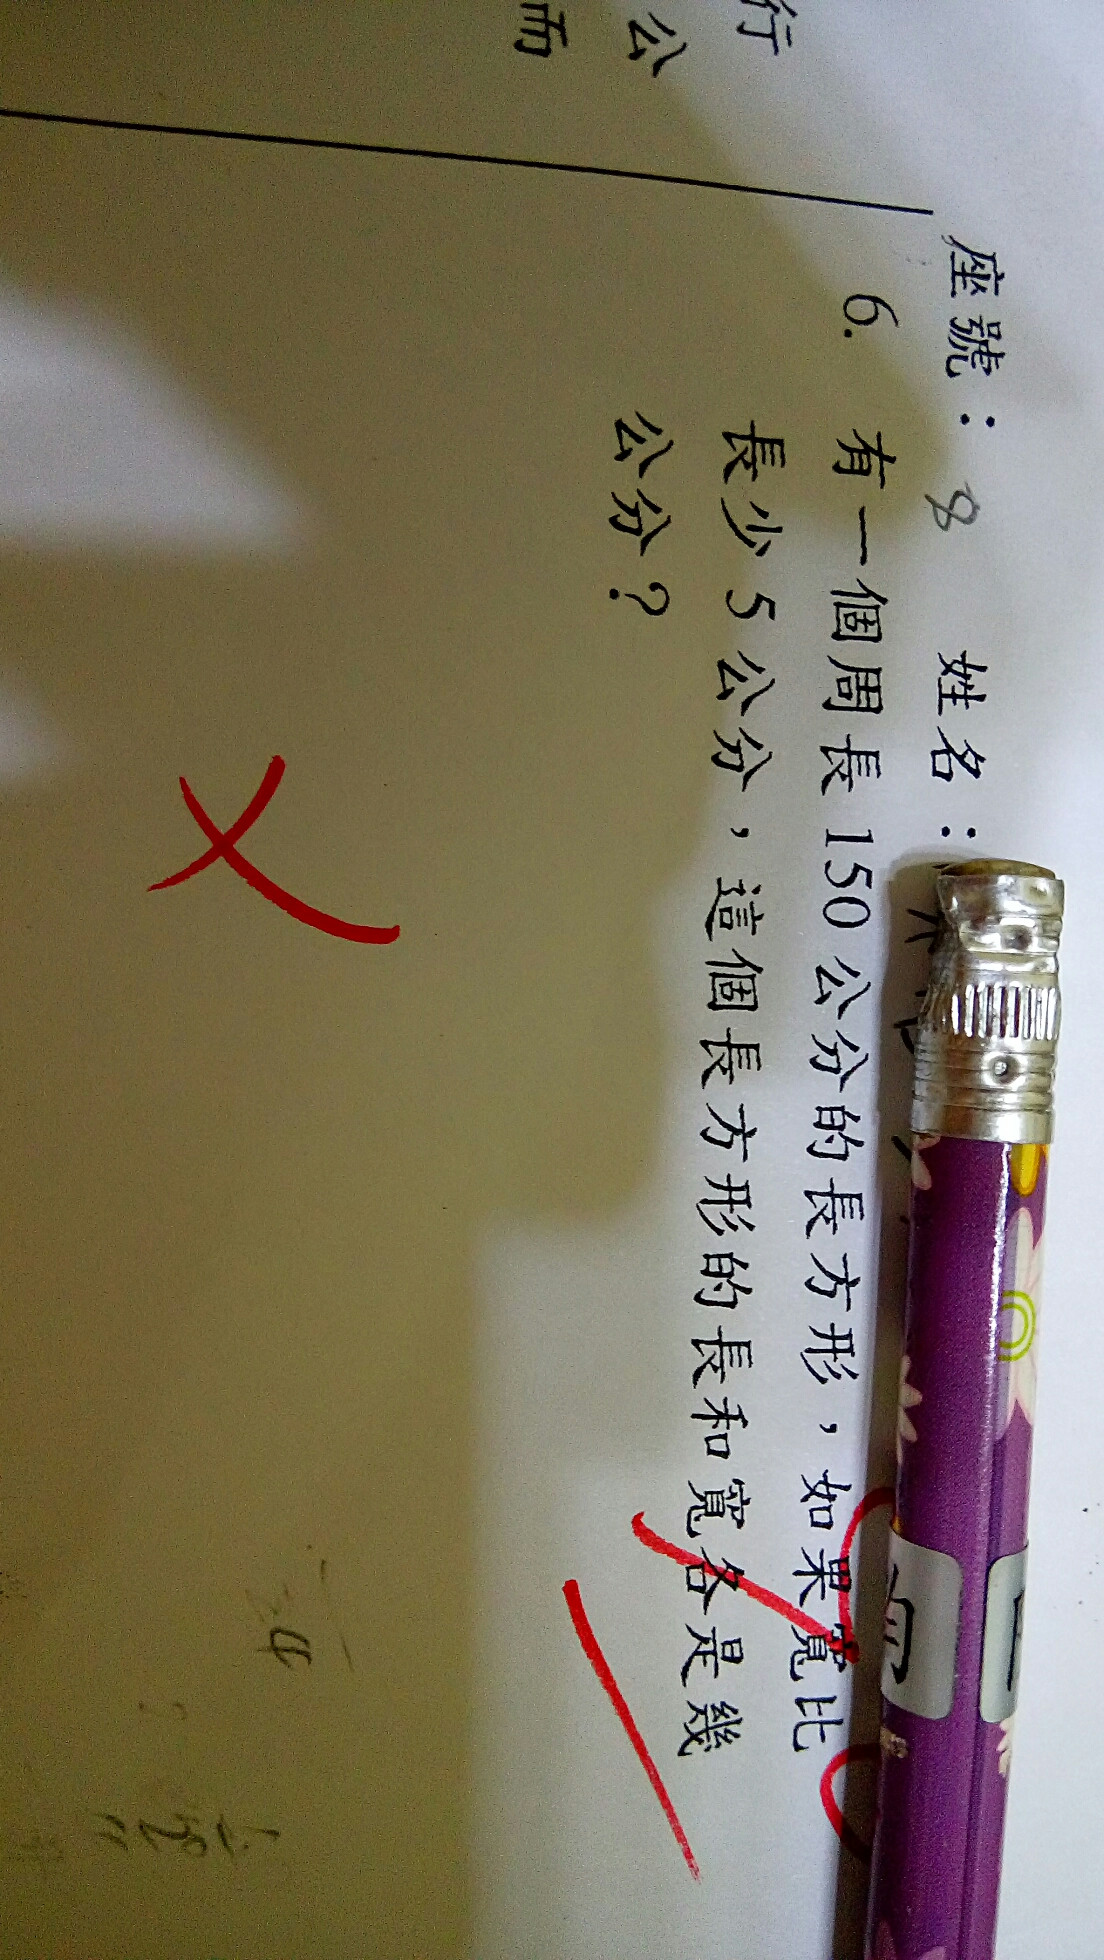 行
公
而
座號：8 姓名：
6. 有一個周長 150 公分的長方形，如果寬比
長少 5 公分，這個長方形的長和寬各是幾
公分？